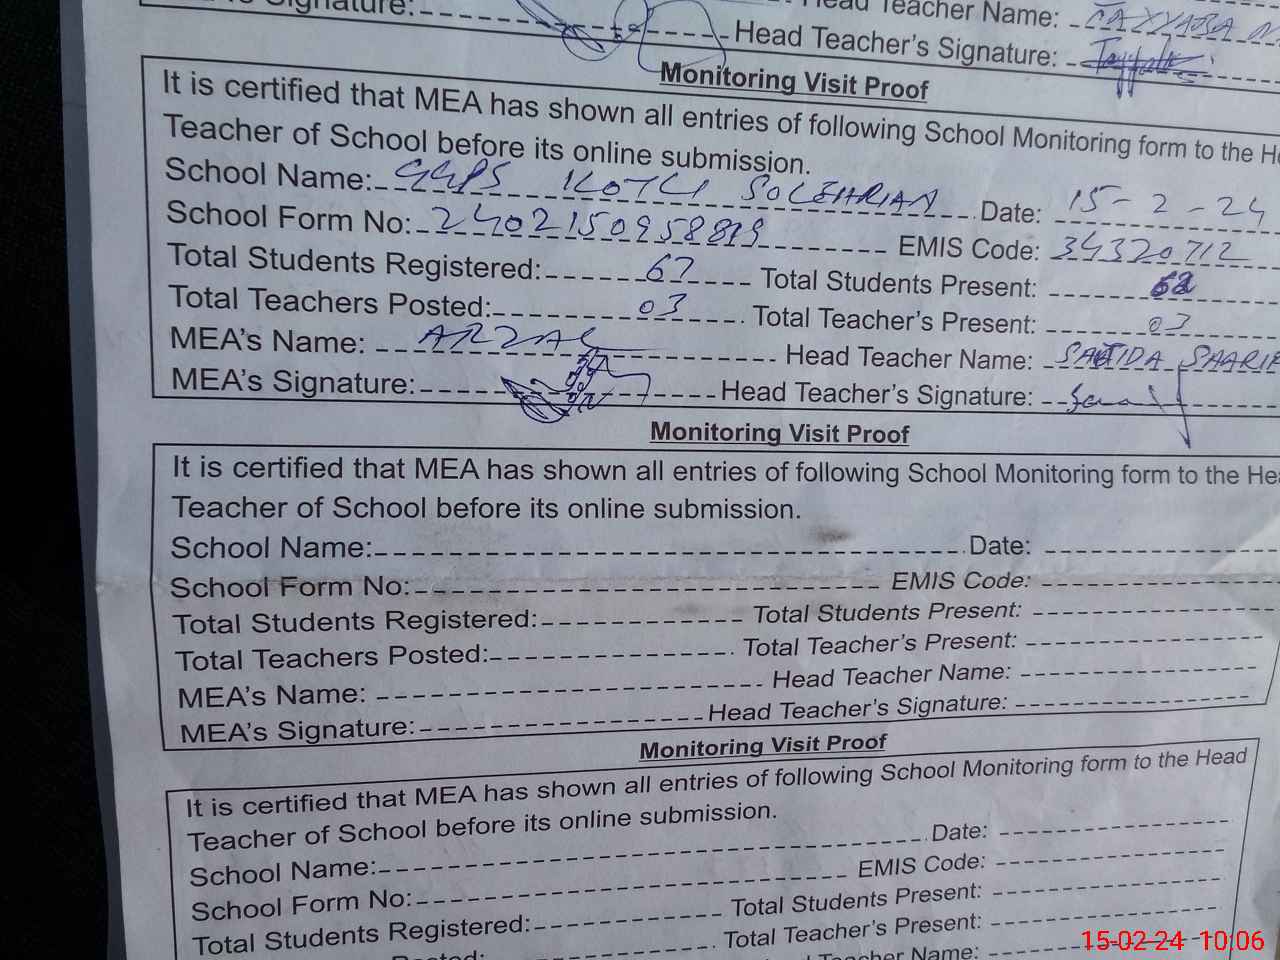 Signature: Head Teacher Name: TAYYABA
Head Teacher's Signature:
Monitoring Visit Proof
It is certified that MEA has shown all entries of following School Monitoring form to the He
Teacher of School before its online submission.
School Name: GGPS KOTLI SOLEHRIAN Date: 15-2-24
School Form No: 2402150958899 EMIS Code: 34320712
Total Students Registered: 67 Total Students Present:
Total Teachers Posted: 03 Total Teacher's Present: 03
MEA's Name: Head Teacher Name: SAJIDA
MEA's Signature: Head Teacher's Signature:
Monitoring Visit Proof
It is certified that MEA has shown all entries of following School Monitoring form to the Hea
Teacher of School before its online submission.
School Name: Date:
School Form No: EMIS Code:
Total Students Registered: Total Students Present:
Total Teachers Posted: Total Teacher's Present:
MEA's Name: Head Teacher Name:
MEA's Signature: Head Teacher's Signature:
Monitoring Visit Proof
It is certified that MEA has shown all entries of following School Monitoring form to the Head
Teacher of School before its online submission.
School Name: Date:
School Form No: EMIS Code:
Total Students Registered: Total Students Present:
Posted: Total Teacher's Present:
Teacher Name:
15-02-24 10:06